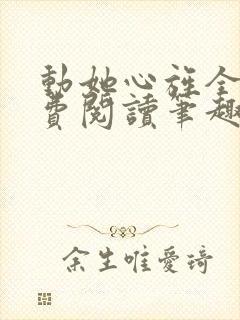 動她心旌全
費閱讀筆趣
余生唯愛琦